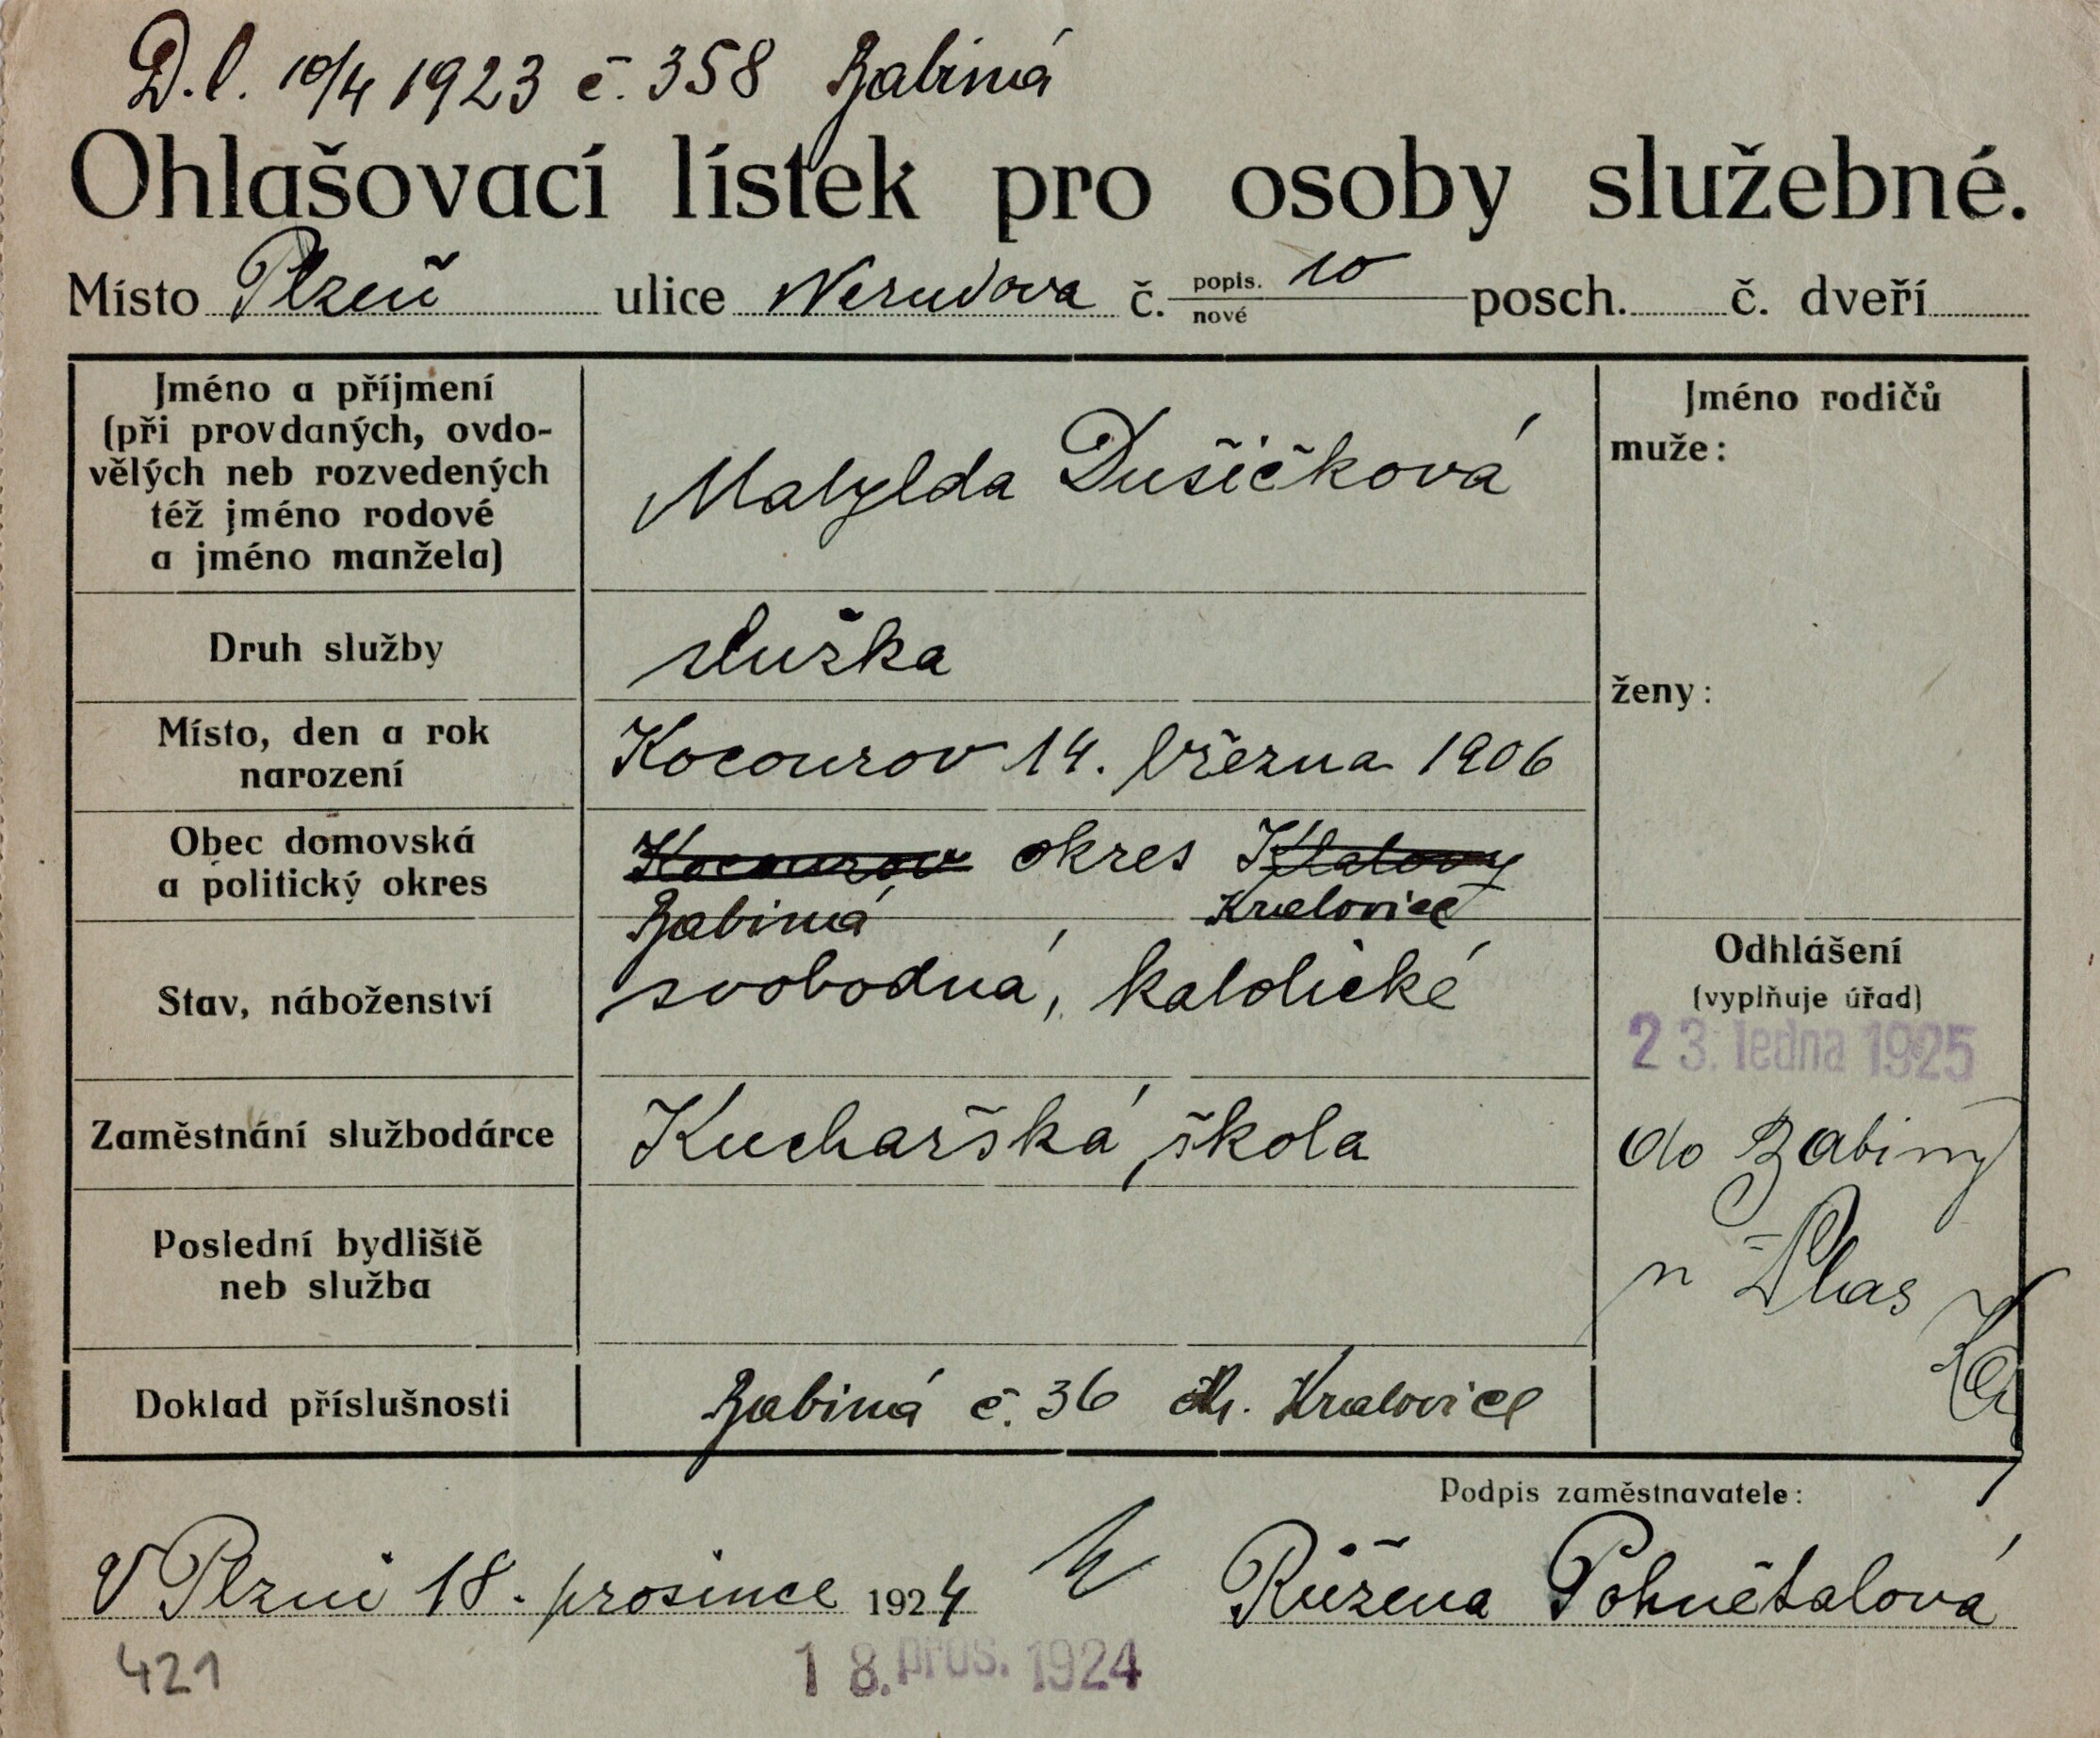 D.l. 10/4 1923 č. 358 Babiná
Ohlašovací lístek pro osoby služebné.
Místo Plzeň ulice Nerudova č. popis. 10 nové posch. č. dveří
Jméno a příjmení
(při provdaných, ovdo-
vělých neb rozvedených
též jméno rodové
a jméno manžela)
Matylda Dušičková
Jméno rodičů
muže:
ženy:
Druh služby
služka
Místo, den a rok
narození
Kocourov 14. března 1906
Obec domovská
a politický okres
Kocourov okres Klatovy
Babiná Kralovice
Stav, náboženství
svobodná, katolické
Odhlášení
(vyplňuje úřad)
23. ledna 1925
do Babiny
n Plas
Zaměstnání službodárce
Kuchařská škola
Poslední bydliště
neb služba
Doklad příslušnosti
Babiná č. 36 Kralovice
Podpis zaměstnavatele:
V Plzni 18. prosince 1924 Růžena Pohnětalová
421
18. pros. 1924